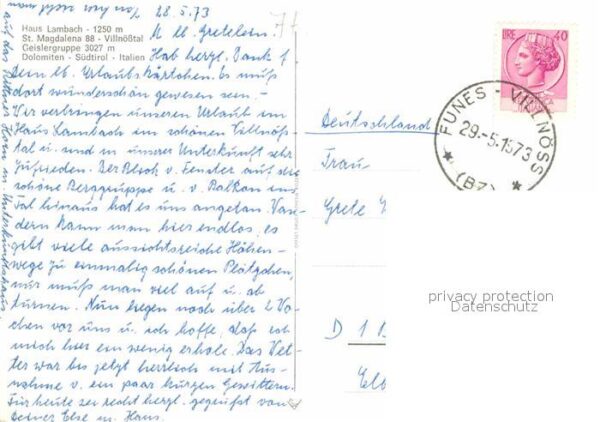 28.5.73
Haus Lambach - 1250 m
St. Magdalena 88 - Villnößtal
Geislergruppe 3027 m
Dolomiten - Südtirol - Italien
M. lb. Gretelein.
Hab herzl. Dank f.
Dein lb. Urlaubskärtchen. Es muß
dort wunderschön gewesen sein. -
Wir verbringen unseren Urlaub im
Haus Lambach im schönen Villnöß-
tal u. sind m. unserer Unterkunft sehr
zufrieden. Der Blick v. Fenster auf die
schöne Berggruppe u. v. Balkon ins
Tal hinaus hat es uns angetan. Wan-
dern kann man hier endlos, es
gibt viele aussichtsreiche Höhen-
wege zu einmalig schönen Plätzchen,
nur muß man viel auf u. ab
turnen. Nun liegen noch über 2 Wo-
chen vor uns u. ich hoffe, daß ich
mich hier ein wenig erhole. Das Wet-
ter war bis jetzt herrlich mit Aus-
nahme v. ein paar kurzen Gewittern.
Für heute sei recht herzl. gegrüßt von
Deiner Else m. Hans.
auf das Rittner Horn m. Unterkunftshaus
LIRE 40
FUNES - VILLNÖSS
29.-5.1973
(BZ)
Deutschland
Frau
Grete
D 1 1
privacy protection
Datenschutz